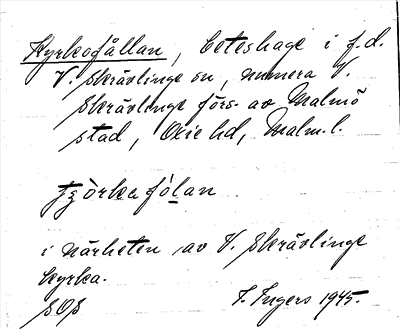 Kyrkofållan, beteshage i f.d.
V. Skrävlinge sn, numera V.
Skrävlinge förs. av Malmö
stad, Oxie hd, Malm.l.
i närheten av V. Skrävlinge
kyrka.
SOS
I. Ingers 1945.